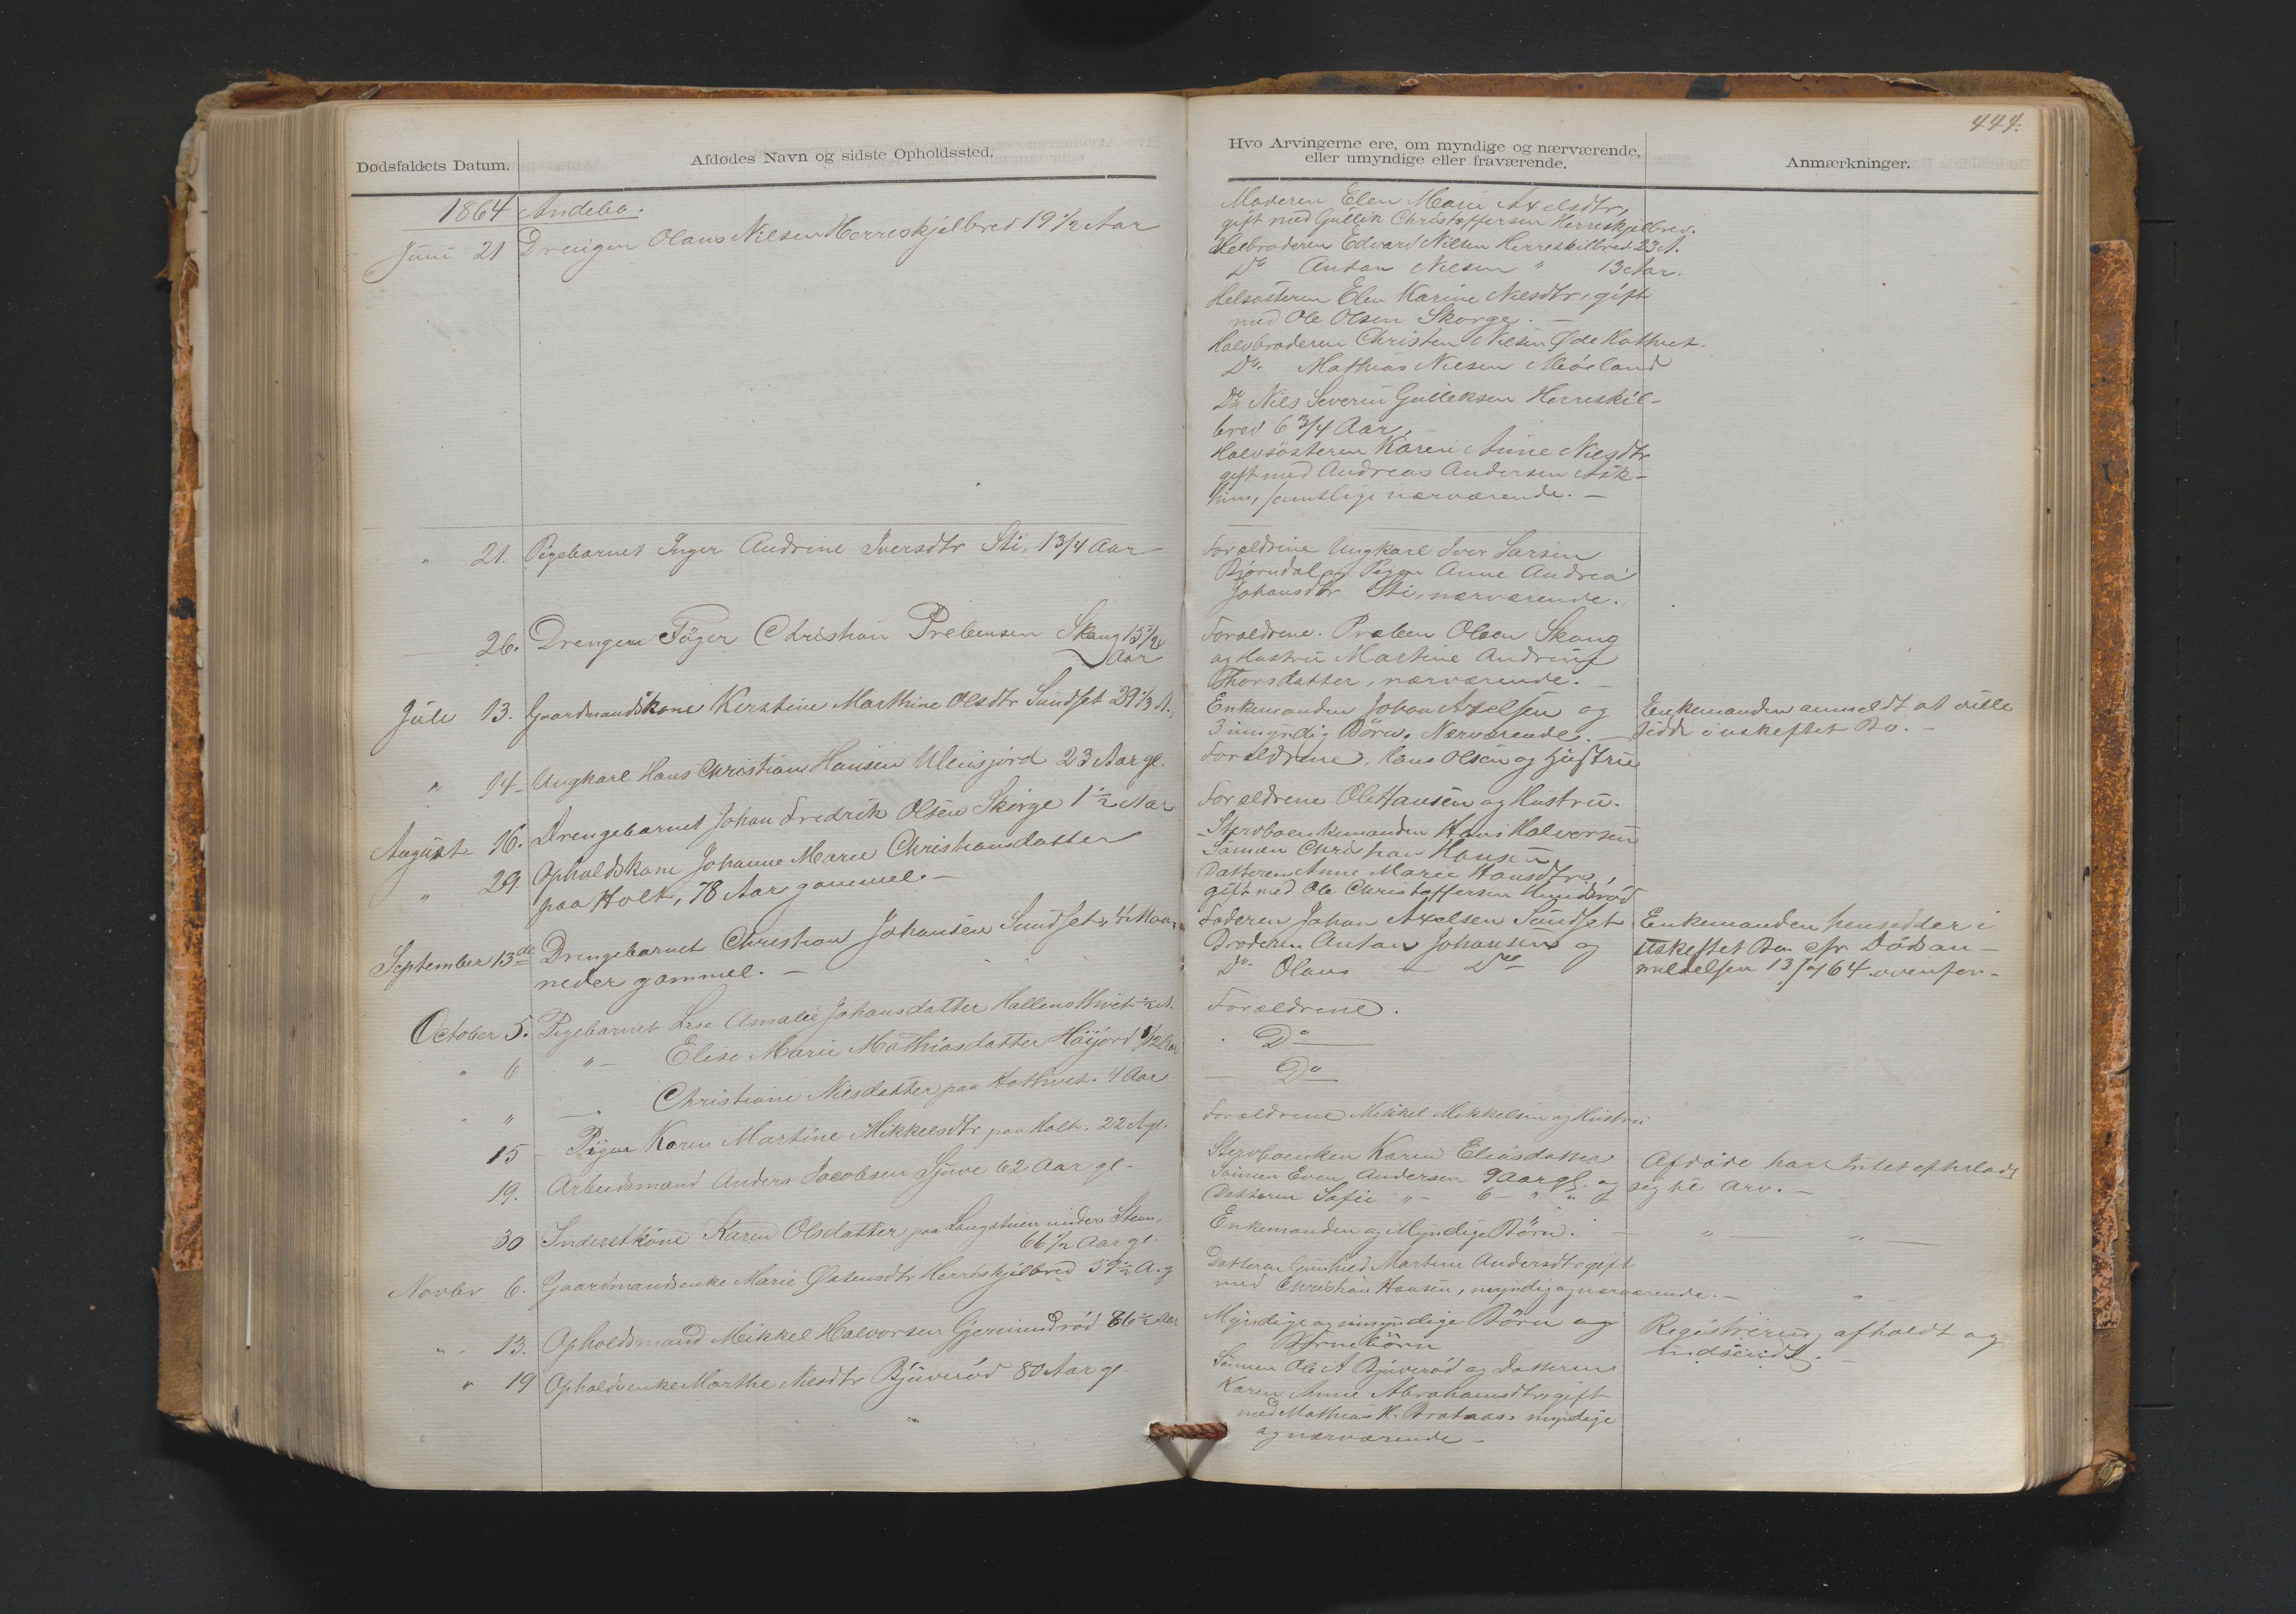 444.
Dødsfaldets Datum.
Afdødes Navn og sidste Opholdssted.
Hvo Arvingerne ere, om myndige og nærværende,
eller umyndige eller fraværende.
Anmærkninger.
1864 Andebo.
Juni 21 Drengen Olaus Nilsen Herreskjelbred 19 1/2 Aar
Moderen Elen Marie Axelsdtr,
gift med Gullik Christoffersen Herreskjelbrev.
Helbroderen Edvard Nilsen Herreskilbred 23 A.
Do Anton Nilsen " 13 Aar.
Helsøsteren Elen Karine Nilsdtr, gift
med Ole Olsen Skorge. —
Halvbroderen Christen Nilsen Øde Hothvet.
Do. Mathias Nilsen Møeland
Do Nils Severin Gulleksen Herreskil-
bred 6 3/4 Aar,
Halvsøsteren Karen Anne Nilsdtr
gift med Andreas Andersen Ask-
him, samtlige nærværende. —
" 21. Pigebarnet Inger Andrine Iversdtr Sti, 1 3/4 Aar
Forældrene Ungkarl Iver Larsen
Bjørndal og Pigen Anne Andrea
Johansdtr Sti, nærværende.
26. Drengen Føger Christian Prebensen Skaug 15 1/2
Aar
Forældrene. Preben Olsen Skoug
og Hustru Martine Andrine
Thorsdatter, nærværende. —
Juli 13. Gaardmandskone Kirstine Marthine Olsdtr Sundset 29 1/3 A.
Enkemanden Johan Axelsen og
3 umyndig Børn. Nærværende. —
Enkemanden anmeldt at ville
sidde i uskiftet Bo. —
" 14 - Ungkarl Hans Christian Hansen Ulensjord 23 Aar gl.
Forældrene, Hans Olsen og Hustru
August 16. Drengebarnet Johan Fredrik Olsen Skorge 1 1/2 Aar
Forældrene Ole Hansen og Hustru.
" 29. Opholdskone Johanne Marie Christiansdatter
paa Holt, 78 Aar gammel. —
Stervboenkemanden Hans Halvorsen
Sønnen Christian Hansen,
Datteren Anne Marie Hansdtr,
gift med Ole Christoffersen
September 13de Drengebarnet Christian Johansen Sundset, Maa-
neder gammel. —
Faderen Johan Axelsen Sundset
Broderen Anton Johansen og
Do. Olaus — Do
Enkemanden hensidder i
uskiftet Bo cfr Dødsan-
meldelsen 13/7 64 ovenfor.
October 5. Pigebarnet Lise Amalie Johansdatter Hallensthvet 1/2 A.
Forældrene.
" 6 " — Elise Marie Mathiasdatter Høijord 1/12 Aar
Do
" " — " Christiane Nilsdatter paa Hothvet. 4 Aar
Do
15 — Pigen Karen Martine Mikkelsdtr paa Holt. 22 A gl.
Forældrene Mikkel Mikkelsen og Hustru
19. Arbeidsmand Anders Jacobsen Sjuve 62 Aar gl.
Stervboenken Karen Eliasdatter
Sønnen Even Andersen 9 Aar gl. og
Datteren Sofie " — 6 — " "
Afdøde har Intet efterladt
sig til Arv. —
30 Inderstkone Karen Olsdatter paa Langstuen under Steen,
66 1/2 Aar gl.
Enkemanden og Myndige Børn. —
" " —
Novbr 6. Gaardmandsenke Marie Østensdtr Herreskjelbred 59 1/2 A. g
Datteren Gunhild Martine Andersdtr gift
med Christian Hansen, myndig og nærværende. —
"
" 13. Opholdsmand Mikkel Halvorsen Gjermundrød 86 1/2 Aar
Myndige og umyndige Børn og
Børnebørn
Registrering afholdt og
indsendt. —
" 19 Opholdsenke Marthe Nilsdtr Bjuverød 80 Aar gl.
Sønnen Ole A Bjuverød og Datteren
Karen Anne Abrahamsdtr, gift
med Mathias H. Brataas, myndige
og nærværende —